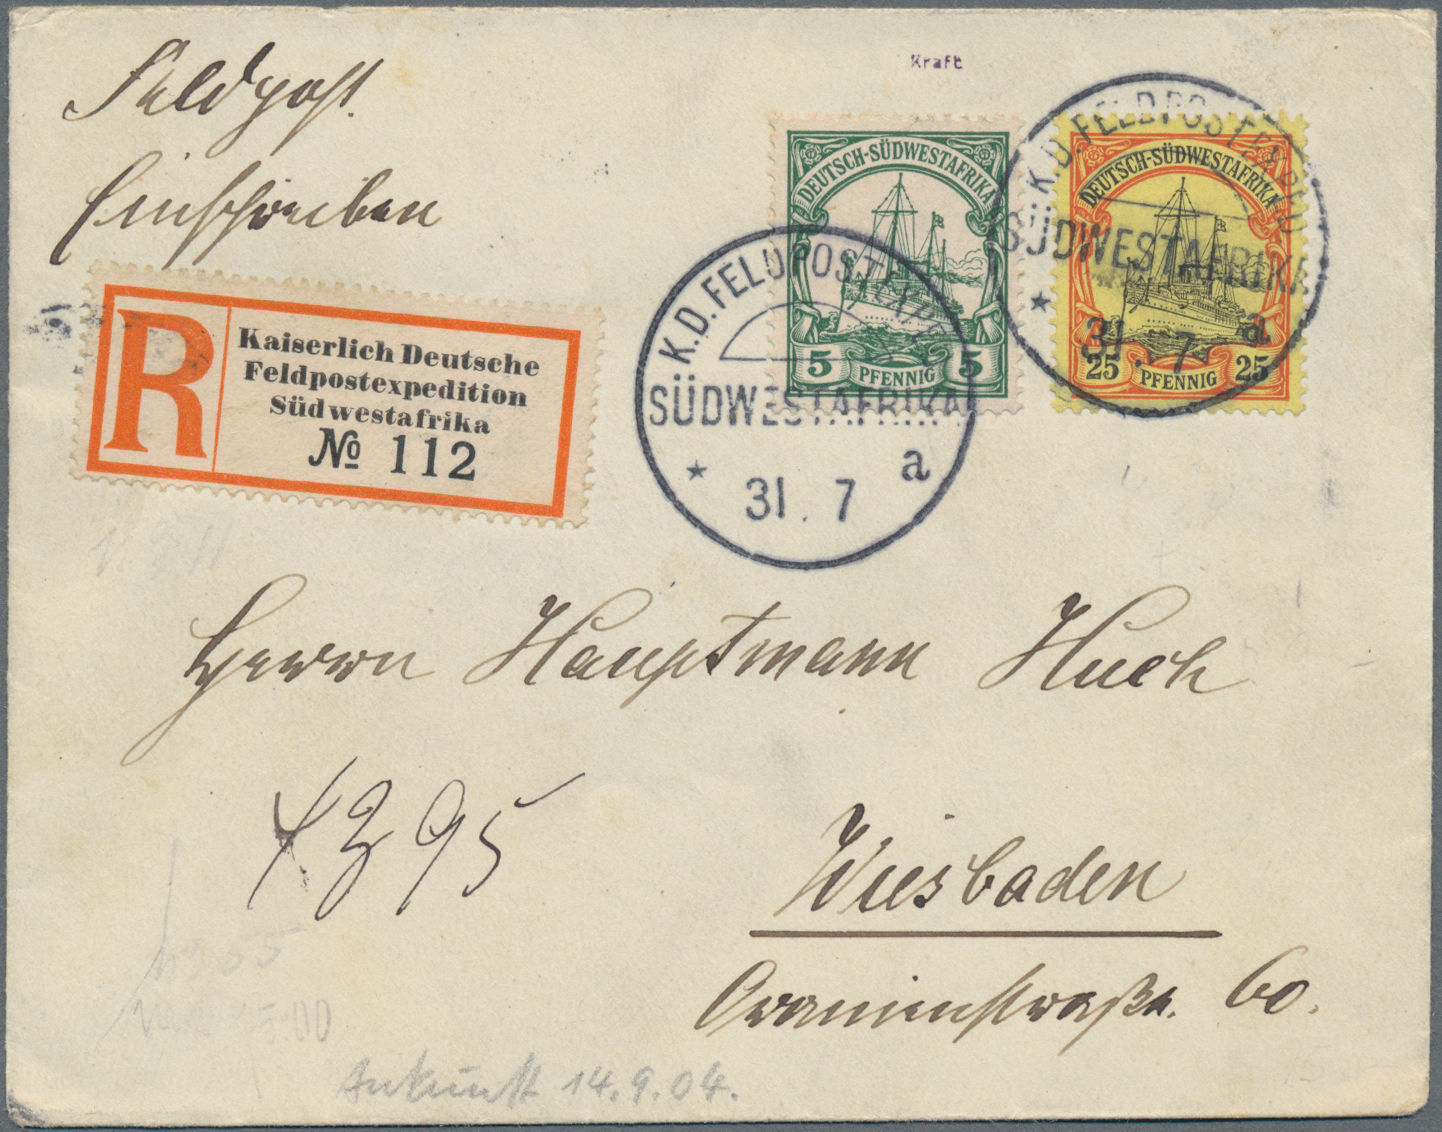 Feldpost.
Einschreiben
Kraft
R
Kaiserlich Deutsche
Feldpostexpedition
Südwestafrika
№ 112
DEUTSCH-SÜDWESTAFRIKA
5 PFENNIG 5
DEUTSCH-SÜDWESTAFRIKA
25 PFENNIG 25
K.D. FELDPOSTEXPED
SÜDWESTAFRIKA
* 31. 7 a
K.D. FELDPOSTEXPED
SÜDWESTAFRIKA
* 31. 7 a
Herrn Hauptmann Huch
395
Wiesbaden
Oranienstraße. 60.
Ankunft 14.9.04.